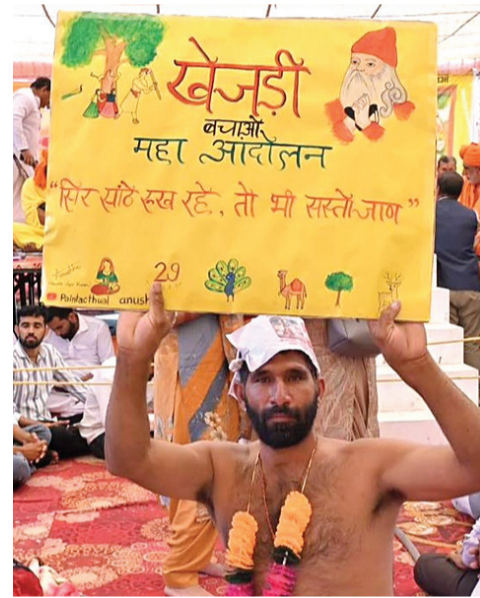 खेजड़ी
बचाओ
महा आंदोलन
“सिर सांटे रूख रहे, तो भी सस्तो जाण”
29
Paintactual anush